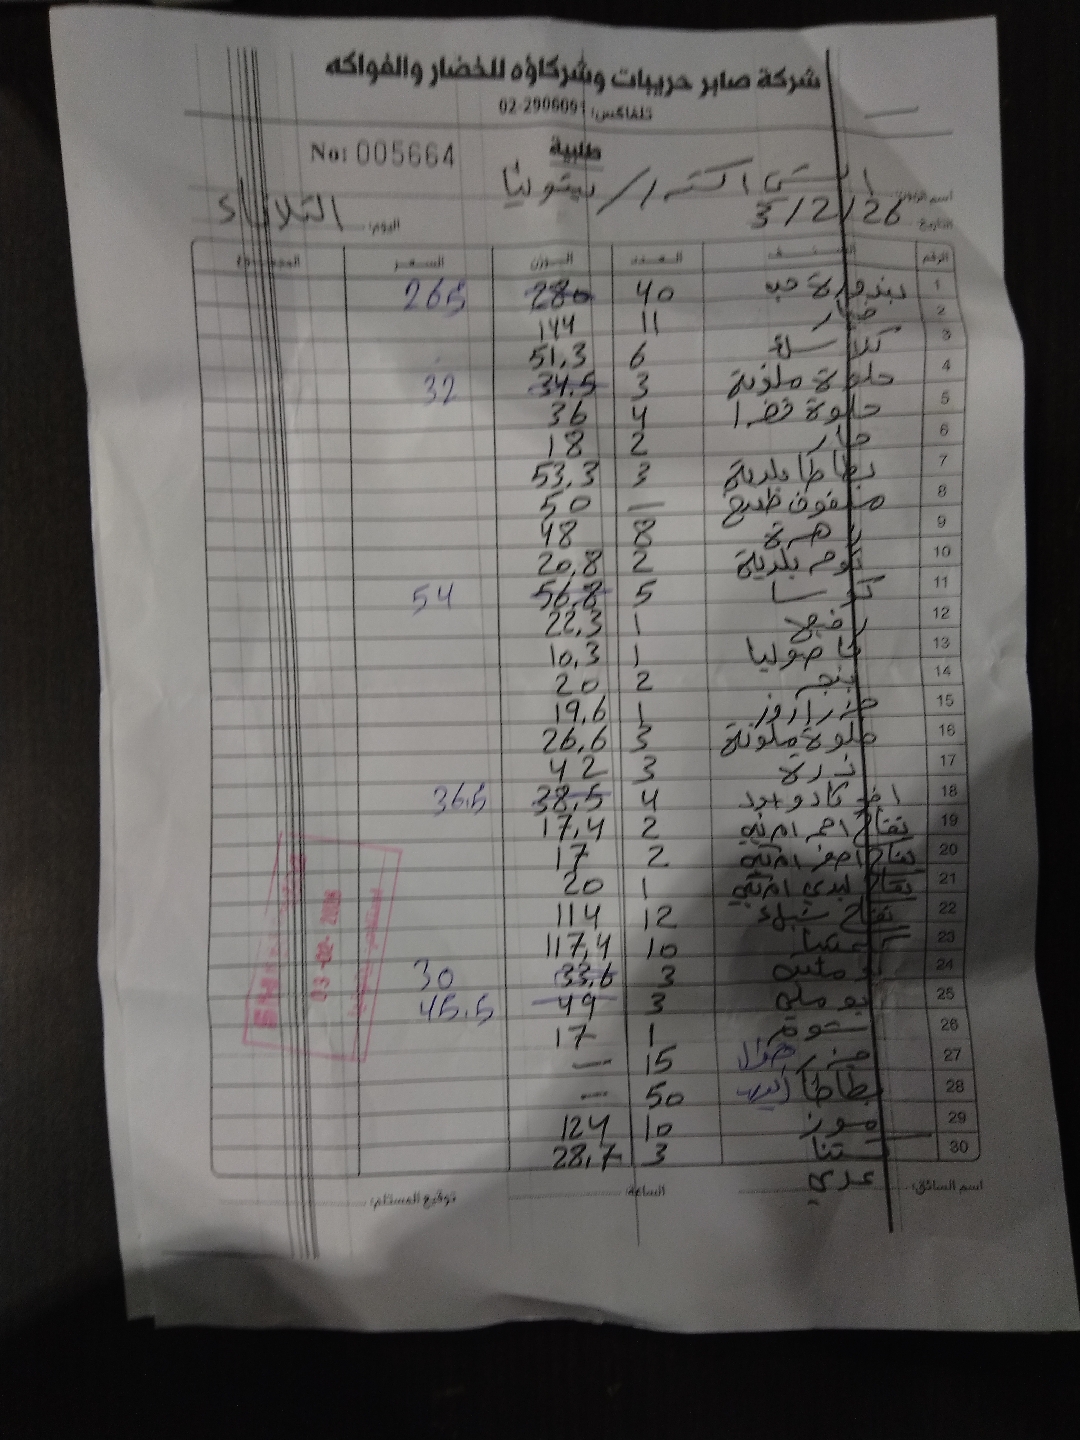 شركة صابر حريبات وشركاؤه للخضار والفواكه
تلفاكس: 02-2906091
طلبية
No: 005664
اسم الزبون: اكسترا / بيتونيا
التاريخ: 3/2/26 اليوم: الثلاثاء
الرقم الصنف العدد الوزن السعر المجموع
1 بندورة حبه 40 280 265
2 خيار 11 144
3 6 51,3
4 حلوة ملونة 3 34.5 32
5 حلوة خضرا 4 36
6 حار 2 18
7 بطاطا بلدية 3 53,3
8 ملفوف طبيخ — 50
9 زهرة 8 48
10 ثوم بلدية 2 20,8
11 كوسا 5 56,8 54
12 رفيع 1 22,3
13 فاصوليا 1 10,3
14 بنجر 2 20
15 جزر اروز 1 19,6
16 حلوة ملونة 3 26,6
17 ذرة 3 42
18 افوكادو 4 38,5 36.5
19 تفاح احمر 2 17,4
20 تفاح اصفر 2 17
21 تفاح ليدي 1 20
22 تفاح 12 114
23 10 117,4
24 3 33.6 30
25 بوملي 3 49 45.5
26 ثوم 1 17
27 جزر 15 —
28 بطاطا 50 —
29 موز 10 124
30 كستنا 3 28,7
اسم السائق: عدي الساعة: توقيع المستلم:
03-02-2026